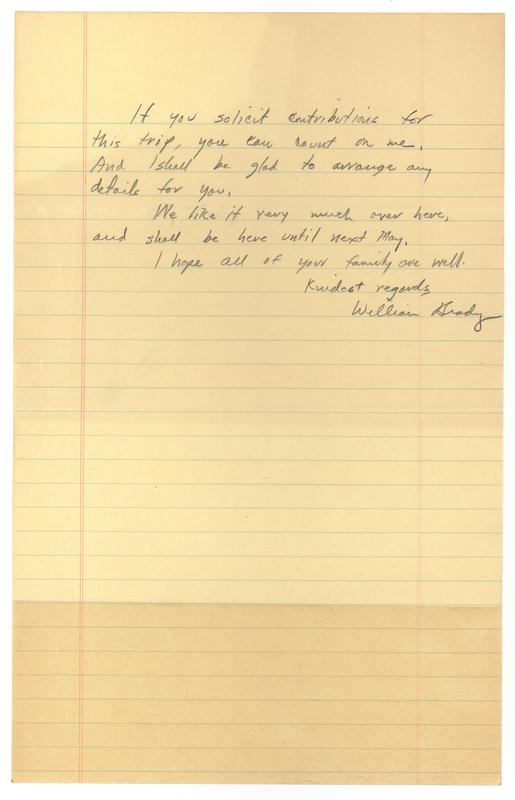 If you solicit contributions for
this trip, you can count on me.
And I shall be glad to arrange any
details for you.
We like it very much over here,
and shall be here until next May.
I hope all of your family are well.
Kindest regards,
William Grady